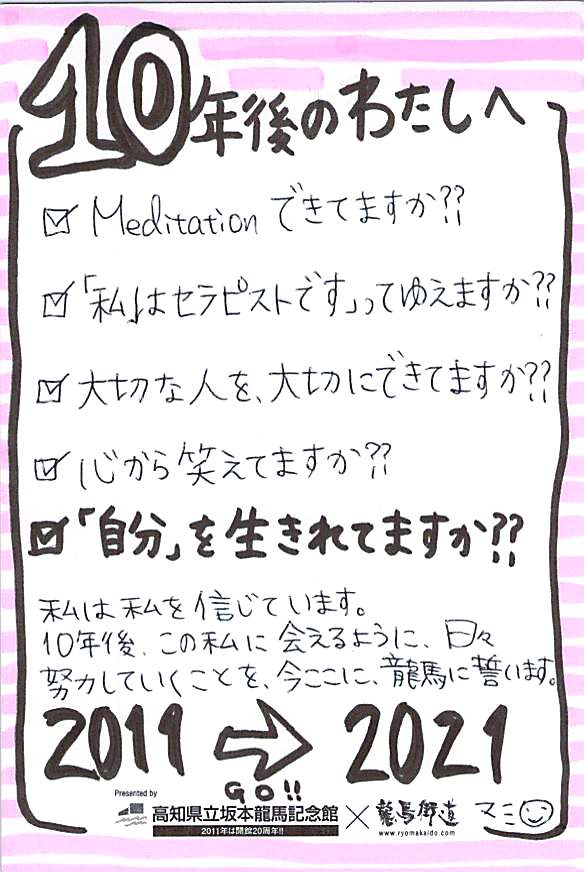 10年後のわたしへ
☑ Meditationできてますか??
☑「私」はセラピストです」ってゆえますか??
☑ 大切な人を、大切にできてますか??
☑ 心から笑えてますか??
☑「自分」を生きれてますか??
私は私を信じています。
10年後、この私に会えるように、日々
努力していくことを、今ここに、龍馬に誓います。
2011 ⇨ 2021
GO!!
Presented by
高知県立坂本龍馬記念館 × 龍馬街道 マミ☺
2011年は開館20周年!! www.ryomakaido.com